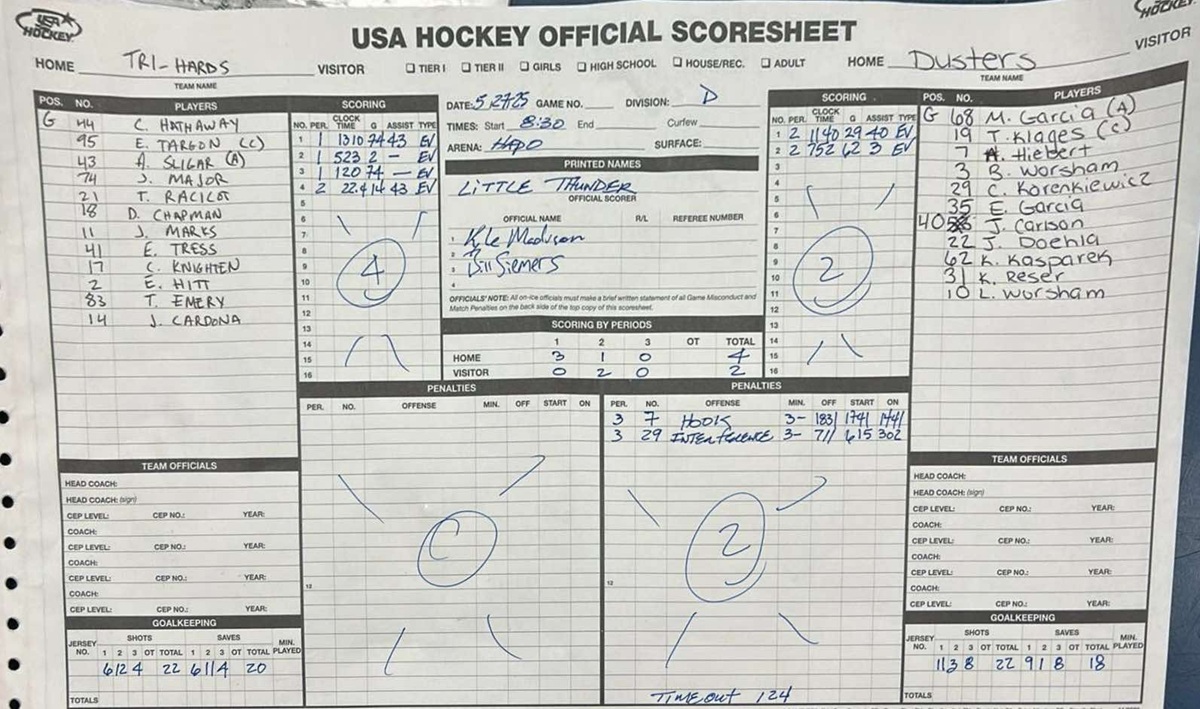 USA HOCKEY
HOCKEY
USA HOCKEY OFFICIAL SCORESHEET
HOME TRI-HARDS VISITOR
TEAM NAME
☐ TIER I ☐ TIER II ☐ GIRLS ☐ HIGH SCHOOL ☐ HOUSE/REC. ☐ ADULT
HOME Dusters VISITOR
TEAM NAME
POS. NO. PLAYERS
G 44 C. HATHAWAY
95 E. TARGON (C)
43 A. SLIGAR (A)
74 J. MAJOR
21 T. RACICOT
18 D. CHAPMAN
11 J. MARKS
41 E. TRESS
17 C. KNIGHTEN
2 E. HITT
83 T. EMERY
14 J. CARDONA
SCORING
NO. PER. CLOCK TIME G ASSIST TYPE
1 1 1310 74 43 EV
2 1 523 2 - EV
3 1 120 74 - EV
4 2 22.4 14 43 EV
5
6
7
8
9
10
11
12
13
14
15
16
4
DATE: 5,27,25 GAME NO. DIVISION: D
TIMES: Start 8:30 End Curfew
ARENA: HAPO SURFACE:
PRINTED NAMES
LITTLE THUNDER
OFFICIAL SCORER
OFFICIAL NAME R/L REFEREE NUMBER
1 Kyle Madison
2
3 Bill Siemers
4
OFFICIALS' NOTE: All on-ice officials must make a brief written statement of all Game Misconduct and
Match Penalties on the back side of the top copy of this scoresheet.
SCORING BY PERIODS
1 2 3 OT TOTAL
HOME 3 1 0 4
VISITOR 0 2 0 2
SCORING
NO. PER. CLOCK TIME G ASSIST TYPE
1 2 1140 29 40 EV
2 2 752 62 3 EV
3
4
5
6
7
8
9
10
11
12
13
14
15
16
2
POS. NO. PLAYERS
G 68 M. Garcia (A)
19 T. Klages (C)
7 A. Hiebert
3 B. Worsham
29 C. Korenkiewicz
35 E. Garcia
40 J. Carlson
22 J. Doehla
62 K. Kasparek
31 K. Reser
10 L. Worsham
PENALTIES
PER. NO. OFFENSE MIN. OFF START ON
12
PENALTIES
PER. NO. OFFENSE MIN. OFF START ON
3 7 HOOK 3- 1831 1741 1441
3 29 INTERFERENCE 3- 711 615 302
2
12
TIMEOUT 124
TEAM OFFICIALS
HEAD COACH:
HEAD COACH: (sign)
CEP LEVEL: CEP NO.: YEAR:
COACH:
CEP LEVEL: CEP NO.: YEAR:
COACH:
CEP LEVEL: CEP NO.: YEAR:
COACH:
CEP LEVEL: CEP NO.: YEAR:
GOALKEEPING
JERSEY NO. SHOTS SAVES MIN. PLAYED
1 2 3 OT TOTAL 1 2 3 OT TOTAL
6 12 4 22 6 11 4 20
TOTALS
TEAM OFFICIALS
HEAD COACH:
HEAD COACH: (sign)
CEP LEVEL: CEP NO.: YEAR:
COACH:
CEP LEVEL: CEP NO.: YEAR:
COACH:
CEP LEVEL: CEP NO.: YEAR:
COACH:
CEP LEVEL: CEP NO.: YEAR:
GOALKEEPING
JERSEY NO. SHOTS SAVES MIN. PLAYED
1 2 3 OT TOTAL 1 2 3 OT TOTAL
11 3 8 22 9 1 8 18
TOTALS